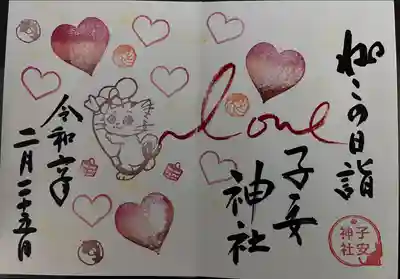 ねこの日詣
love
子安
神社
子安
神社
令和六年
二月二十五日